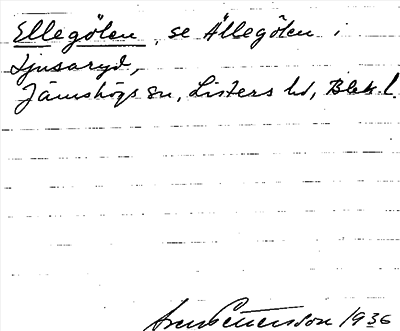 Ellegölen, se Ällegölen i
Ljusaryd,
Jämshögs sn, Listers hd, Blek. l.
Pettersson 1936